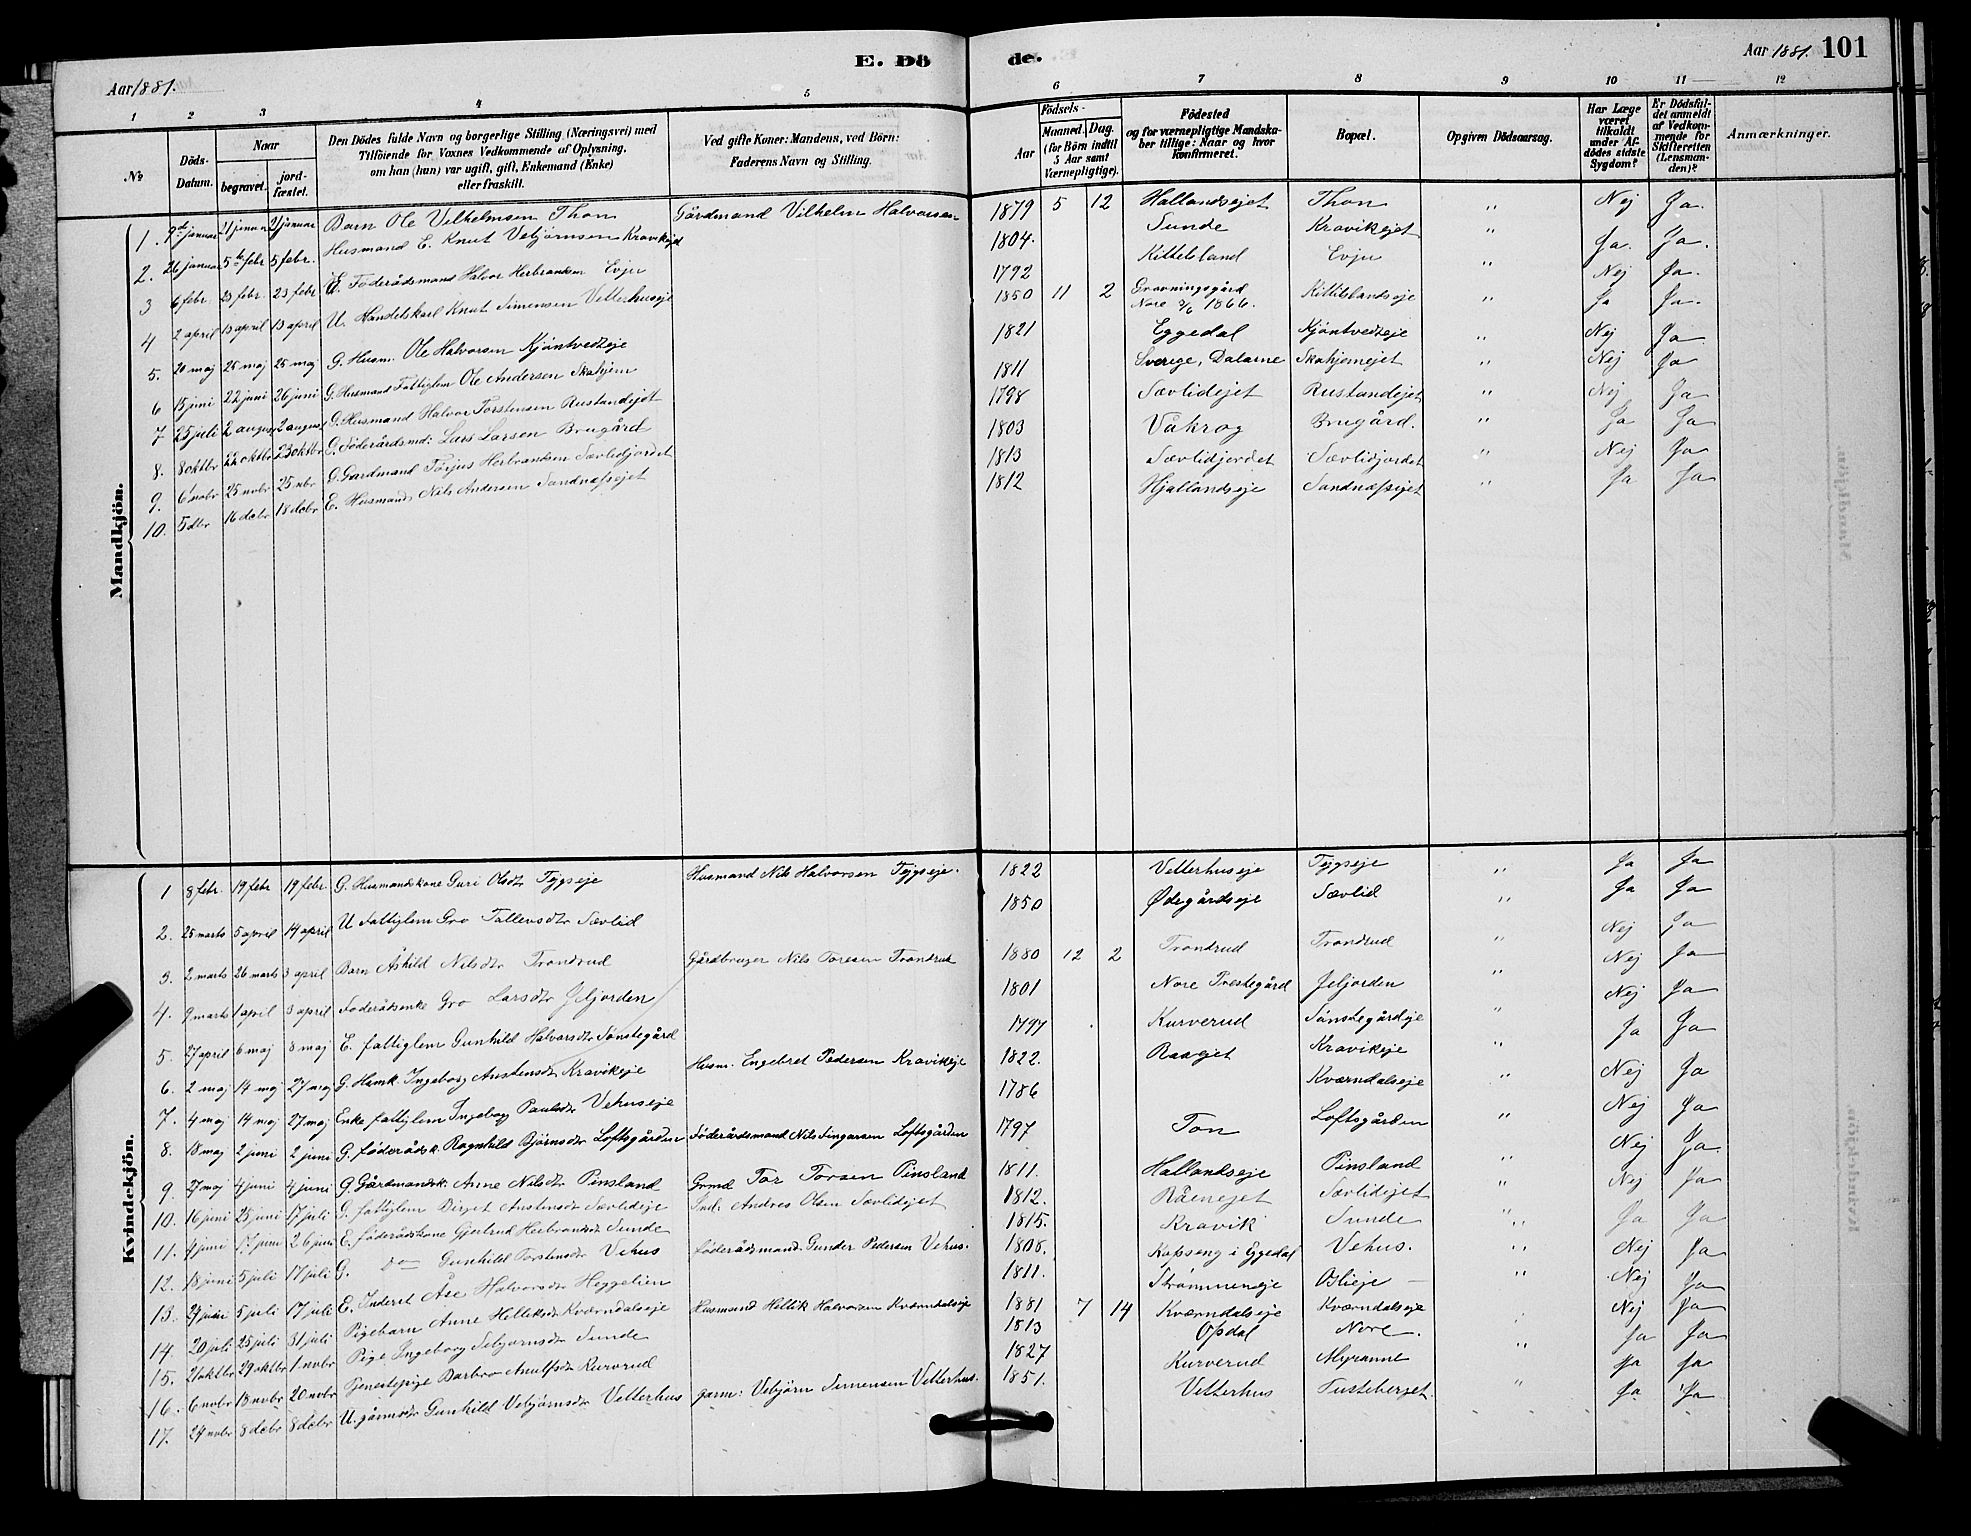 E. Dö de.
Aar 1881.
Aar 1881. 101
1 2 3 4 5 6 7 8 9 10 11 12
№
Döds-Datum.
Naar
begravet.
jord-fæstet.
Den Dödes fulde Navn og borgerlige Stilling (Næringsvei) med
Tilföiende for Voxnes Vedkommende af Oplysning,
om han (hun) var ugift, gift, Enkemand (Enke)
eller fraskilt.
Ved gifte Koner: Mandens, ved Börn:
Faderens Navn og Stilling.
Födsels-
Aar
Maaned. Dag.
(for Börn indtil
5 Aar samt
Værnepligtige).
Födested
og for værnepligtige Mandska-
ber tillige: Naar og hvor
Konfirmeret.
Bopæl.
Opgiven Dödsaarsag.
Har Læge
været
tilkaldt
under Af-
dødes sidste
Sygdom?
Er Dödsfal-
det anmeldt
af Vedkom-
mende for
Skifteretten
(Lensman-
den)?
Anmærkninger.
Mandkjön.
1. 9de januar 21 januar 21 januar Barn Ole Vilhelmsen Thon Gårdmand Vilhelm Halvorsen 1879 5 12 Hallandsejet Thon " Nej Ja.
2. 26 januar 5te febr 5 febr. Husmand E. Knut Vebjørnsen Kravikejet 1804. Sunde Kravikejet " Ja. Ja.
3 6 febr. 23 febr. 23 febr E. Föderådsmand Halvor Herbrandsen Evju 1792 Kittelsland Evju " Nej Ja.
4 2 april 13 april 13 april U. Handelskarl Knut Simensen Vetterhuseje 1850 11 2 Gravningsgård Nore 3/6 1866. Kittilslandseje " Ja Ja.
5. 20 maj 25 maj 25 maj G. Husm. Ole Halvorsen Kjöntvedteje 1821 Eggedal Kjöntvedteje " Nej Ja
6 15 juni 22 juni 26 juni G. Husmand Fattiglem Ole Andersen Skahjem 1811 Sverige, Dalarne Skahjemejet " Nej Ja
7 25 juli 2 august 2 august G. Husmand Halvor Torstensen Rustandejet 1798 Sævlidejet Rustandejet " Nej Ja
8. 8 oktbr 22 oktbr 23 oktbr G. Föderådsmd: Lars Larsen Brugård 1803 Våkrog Brugård. " Ja Ja
9. 6 novbr 25 novbr 25 nbr G. Gardmand Torjus Herbrandsen Sævlidjordet 1813 Sævlidjordet Sævlidjordet " Nej Ja
10. 5 dbr 16 decbr 18 decbr E. Husmand Nils Andersen Sandnæsejet 1812 Hjallandseje Sandnæsejet " Ja Ja
Kvindekjön.
1 8 febr. 19 febr 19 febr. G. Husmandskone Guri Olsdtr Tygseje Husmand Nils Halvorsen Tygseje. 1822 Vetterhuseje Tygseje " Ja Ja
2. 25 marts 5 april 14 april U Fattiglem Gro Tallevsdtr Sævlid 1850 Ødegårdseje Sævlid " Ja Ja
3. 2 marts 26 marts 3 april Barn Askild Nilsdtr Trondrud Gårdbruger Nils Toresen Trondrud 1880 12 2 Trondrud Trondrud " Nej Ja
4. 9 marts 1 april 3 april Föderådsenke Gro Larsdtr Jeljorden 1801 Nore Prestegård Jeljorden " Nej Ja
5. 27 april 6 maj 8 maj E. fattiglem Gunhild Halvorsdtr Sönstegård 1797 Kurverud Sönstegårdeje " Nej Ja
6. 2 maj 14 maj 27 maj G. Hsmk. Ingeborg Anstensdtr Kravikeje Husm. Engebret Pedersen Kravikeje 1822. Kravikeje " Ja Ja
7. 4 maj 14 maj 27 maj Enke fattiglem Ingeborg Paulsdtr Vehuseje 1786 Kværndalseje " Nej Ja
8. 18 maj 2 juni 2 juni G. föderådsk. Ragnhild Björnsdtr Loftsgården Föderådsmand Nils Fingarsen Loftsgården 1797 Ton Loftsgården " Nej Ja
9. 27 maj 4 juni 4 juni G. Gårdmandsk. Anne Nilsdtr Pinsland Grmd Tor Torsen Pinsland 1811. Hallandseje Pinsland " Nej Ja
10. 16 juni 25 juni 17 juli G. fattiglem Birget Anstensdtr Sævlideje Ind. Andres Olsen Sævlidejet 1812. Råenejet Sævlidejet " Nej Ja
11. 4 juni 17 juni 26 juni E. föderådskone Gjertrud Herbrandsdtr Sunde 1815. Kravik Sunde " Ja Ja
12. 18 juni 5 juli 17 juli G. do Gunhild Torstensdtr Vehus föderådsmand Gunder Pedersen Vehus. 1808. Kopseng i Eggedal Vehus. " Nej Ja
13. 24 juni 5 juli 17 juli E. Inderst Åse Halvorsdtr Heggelien 1811. Strömmeneje Oslieje " Nej Ja
14. 20 juli 25 juli 31 juli Pigebarn Anne Helliksdtr Kværndalseje Husmand Hellik Halvorsen Kværndalseje 1881 7 14 Kværndalseje Kværndalseje Nej Ja
15. 21 oktbr 29 oktbr 1. novbr Pige Ingeborg Sebjörnsdtr Sunde 1813 Opdal Nore. " Ja Ja
16. 6 novbr 13 novbr 20 novbr Tjenestepige Barbro Anulfsdtr Kurvrud 1827 Kurverud Myranne Ja Ja
17. 24 novbr 8 decbr 8 decbr U. gårmsdtr Gunhild Vebjørnsdtr Vetterhus garm: Vebjørn Simensen Vetterhus. 1851. Vetterhus Tusteberget. " Ja Ja